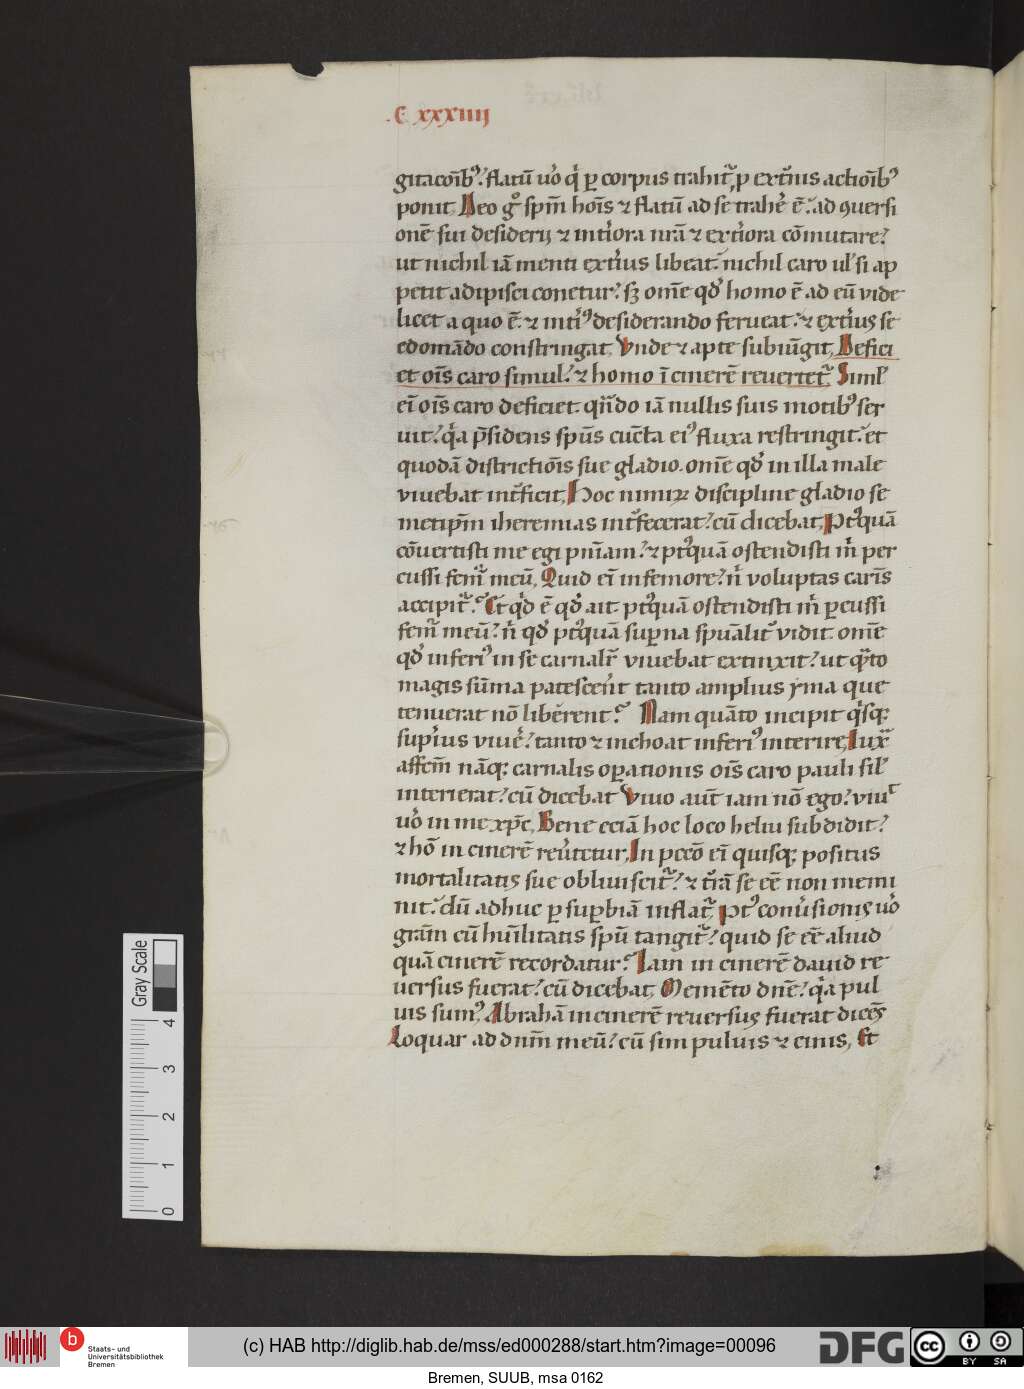 .C xxxiiij
gitacōibꝰ. flatū uo᷑ q̇ ꝑ corpus trahit᷑, ꝑ exti᷑us actōibꝰ
ponit. Deo gͦ spm̄ hoīs ⁊ flatū ad se trahe᷑ ē. ad ꝯuersi
onē sui desiderij ⁊ inti᷑ora nrā ⁊ exti᷑ora cōmutare.
ut nichil iā menti exti᷑us libeat. nichil caro ul᷑ si ap
petit adipisci conetur. sꝫ om̄e qd᷑ homo ē ad eū vide
licet a quo ē. ⁊ inti᷑ꝰ desiderando ferueat. ⁊ exti᷑us se
edomādo constringat. Vnde ⁊ apte subiūgit, Defici
et oīs caro simul. ⁊ homo ī cinerē reuertet᷑. Siml᷑
eī oīs caro deficiet. qn̄do iā nullis suis motibꝰ ser
uit. qͣ p̄sidens spūs cūcta eiꝰ fluxa restringit. et
quodā districtiōis sue gladio. om̄e qd᷑ in illa male
viuebat int᷑ficit, Hoc nimiꝝ discipline gladio se
metip̄m iheremias int᷑fecerat. cū dicebat, Ptꝰquā
cōuertisti me egi pn̄iam. ⁊ ptꝰquā ostendisti ṁ per
cussi fem᷑ meū, Quid eī in femore. n̊ voluptas carīs
accipit᷑. Et qͥd ē qd᷑ ait ptꝰquā ostendisti ṁ ꝑcussi
fem᷑ meū. n̊ qd᷑ ptꝰquā suꝑna spūalit᷑ vidit. om̄e
qd᷑ inferiꝰ in se carnalr᷑ viuebat extinxit. ut qͣto
magis sūma patesce᷑nt tanto amplius yma que
tenuerat nō libērent. Nam quāto incipit qͥsqꝫ
supi᷑us viue᷑. tanto ⁊ inchoat inferiꝰ interire, Iuxͣ
assem̄ nāqꝫ carnalis oꝑationis oīs caro pauli sil᷑
interierat. cū dicebat Viuo aut̄ iam nō ego. viuᶜ
uo᷑ in me xp̄c, Bene eciā hoc loco heliu subdidit.
⁊ hō in cinerē reu᷑tetur, In pccō eī quisqꝫ positus
mortalitatis sue obliuiscit᷑. ⁊ t᷑rā se ee̅ non memi
nit. dū adhuc ꝑ suꝑbiā inflat᷑, ptꝰ conu᷑sionis uo᷑
gram̄ cū hūilitatis spū tangit᷑. quid se ee̅ aliud
quā cinerē recordatur. Iam in cinerē dauid re
uersus fuerat. cū dicebat, Memēto dn̄e. qͣ pul
uis sumꝰ. Abrahā in cinerē reuersus fuerat dicēs
Loquar ad dn̄m meū. cū sim puluis ⁊ cinis, Et
Gray Scale
4
3
2
1
0
b
Staats- und
Universitätsbibliothek
Bremen
(c) HAB http://diglib.hab.de/mss/ed000288/start.htm?image=00096
DFG
cc
BY SA
Bremen, SUUB, msa 0162